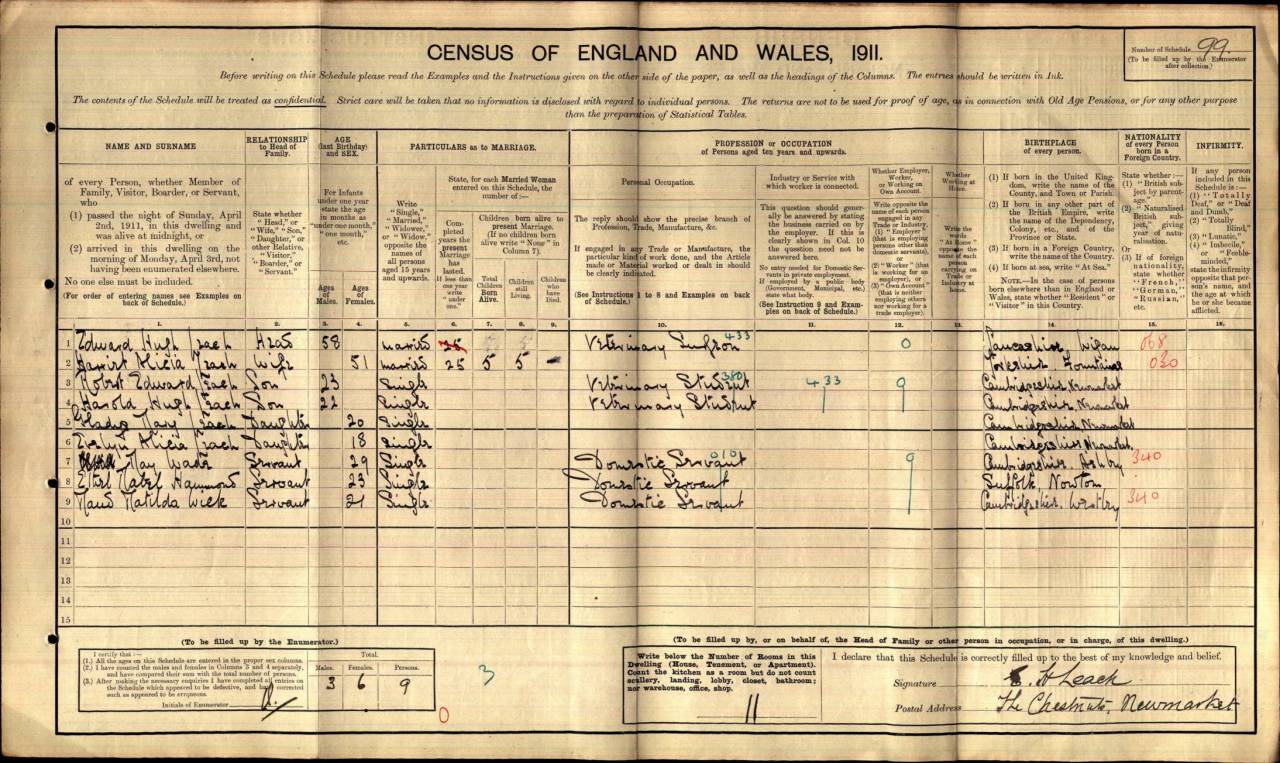 CENSUS OF ENGLAND AND WALES, 1911.
Number of Schedule 99.
(To be filled up by the Enumerator
after collection.)
Before writing on this Schedule please read the Examples and the Instructions given on the other side of the paper, as well as the headings of the Columns. The entries should be written in Ink.
The contents of the Schedule will be treated as confidential. Strict care will be taken that no information is disclosed with regard to individual persons. The returns are not to be used for proof of age, as in connection with Old Age Pensions, or for any other purpose
than the preparation of Statistical Tables.
NAME AND SURNAME
of every Person, whether Member of
Family, Visitor, Boarder, or Servant,
who
(1) passed the night of Sunday, April
2nd, 1911, in this dwelling and
was alive at midnight, or
(2) arrived in this dwelling on the
morning of Monday, April 3rd, not
having been enumerated elsewhere.
No one else must be included.
(For order of entering names see Examples on
back of Schedule.)
RELATIONSHIP
to Head of
Family.
State whether
"Head," or
"Wife," "Son,"
"Daughter," or
other Relative,
"Visitor,"
"Boarder," or
"Servant."
AGE
(last Birthday)
and SEX.
For Infants
under one year
state the age
in months as
"under one month,"
"one month,"
etc.
Ages
of
Males.
Ages
of
Females.
PARTICULARS as to MARRIAGE.
Write
"Single,"
"Married,"
"Widower,"
or "Widow,"
opposite the
names of
all persons
aged 15 years
and upwards.
State, for each Married Woman
entered on this Schedule, the
number of :—
Completed
years the
present
Marriage
has
lasted.
If less than
one year
write
"under
one."
Children born alive to
present Marriage.
(If no children born
alive write "None" in
Column 7).
Total
Children
Born
Alive.
Children
still
Living.
Children
who
have
Died.
PROFESSION or OCCUPATION
of Persons aged ten years and upwards.
Personal Occupation.
The reply should show the precise branch of
Profession, Trade, Manufacture, &c.
If engaged in any Trade or Manufacture, the
particular kind of work done, and the Article
made or Material worked or dealt in should
be clearly indicated.
(See Instructions 1 to 8 and Examples on back
of Schedule.)
Industry or Service with
which worker is connected.
This question should generally
be answered by stating
the business carried on by
the employer. If this is
clearly shown in Col. 10
the question need not be
answered here.
No entry needed for Domestic Servants
in private employment.
If employed by a public body
(Government, Municipal, etc.)
state what body.
(See Instruction 9 and Examples
on back of Schedule.)
Whether Employer,
Worker,
or Working on
Own Account.
Write opposite the
name of each person
engaged in any
Trade or Industry,
(1) "Employer"
(that is employing
persons other than
domestic servants),
or
(2) "Worker" (that
is working for an
employer), or
(3) "Own Account"
(that is neither
employing others
nor working for a
trade employer).
Whether
Working at
Home.
Write the words
"At Home"
opposite the
name of each
person
carrying on
Trade or
Industry at
home.
BIRTHPLACE
of every person.
(1) If born in the United Kingdom,
write the name of the
County, and Town or Parish.
(2) If born in any other part of
the British Empire, write
the name of the Dependency,
Colony, etc., and of the
Province or State.
(3) If born in a Foreign Country,
write the name of the Country.
(4) If born at sea, write "At Sea."
NOTE.—In the case of persons
born elsewhere than in England or
Wales, state whether "Resident" or
"Visitor" in this Country.
NATIONALITY
of every Person
born in a
Foreign Country.
State whether :—
(1) "British subject
by parentage."
(2) "Naturalised
British subject,"
giving
year of naturalisation.
Or
(3) If of foreign
nationality,
state whether
"French,"
"German,"
"Russian,"
etc.
INFIRMITY.
If any person
included in this
Schedule is :—
(1) "Totally
Deaf," or "Deaf
and Dumb,"
(2) "Totally
Blind,"
(3) "Lunatic,"
(4) "Imbecile,"
or "Feeble-minded,"
state the infirmity
opposite that person's
name, and
the age at which
he or she became
afflicted.
1. 2. 3. 4. 5. 6. 7. 8. 9. 10. 11. 12. 13. 14. 15. 16.
1 Edward Hugh Leach Head 58 married 25 5 5 Veterinary Surgeon 433 0 Lancashire, Wigan 068
2 Harriet Alicia Leach Wife 51 married 25 5 5 - Yorkshire, Fountains 030
3 Robert Edward Leach Son 23 Single Veterinary Student 380 433 9 Cambridgeshire, Newmarket
4 Harold Hugh Leach Son 22 Single Veterinary Student Cambridgeshire, Newmarket
5 Gladys May Leach Daughter 20 Single Cambridgeshire, Newmarket
6 Evelyn Alicia Leach Daughter 18 Single Cambridgeshire, Newmarket
7 May Wade Servant 29 Single Domestic Servant 010 9 Cambridgeshire, Ashby 340
8 Ethel Mabel Hammond Servant 23 Single Domestic Servant Suffolk, Nowton
9 Maud Matilda Wick Servant 21 Single Domestic Servant Cambridgeshire, Westley 340
10
11
12
13
14
15
(To be filled up by the Enumerator.)
I certify that :—
(1.) All the ages on this Schedule are entered in the proper sex columns.
(2.) I have counted the males and females in Columns 3 and 4 separately,
and have compared their sum with the total number of persons.
(3.) After making the necessary enquiries I have completed all entries on
the Schedule which appeared to be defective, and have corrected
such as appeared to be erroneous.
Initials of Enumerator
Total.
Males. Females. Persons.
3 6 9
3
0
(To be filled up by, or on behalf of, the Head of Family or other person in occupation, or in charge, of this dwelling.)
Write below the Number of Rooms in this
Dwelling (House, Tenement, or Apartment).
Count the kitchen as a room but do not count
scullery, landing, lobby, closet, bathroom;
nor warehouse, office, shop.
11
I declare that this Schedule is correctly filled up to the best of my knowledge and belief.
Signature E. H Leach
Postal Address The Chestnuts, Newmarket